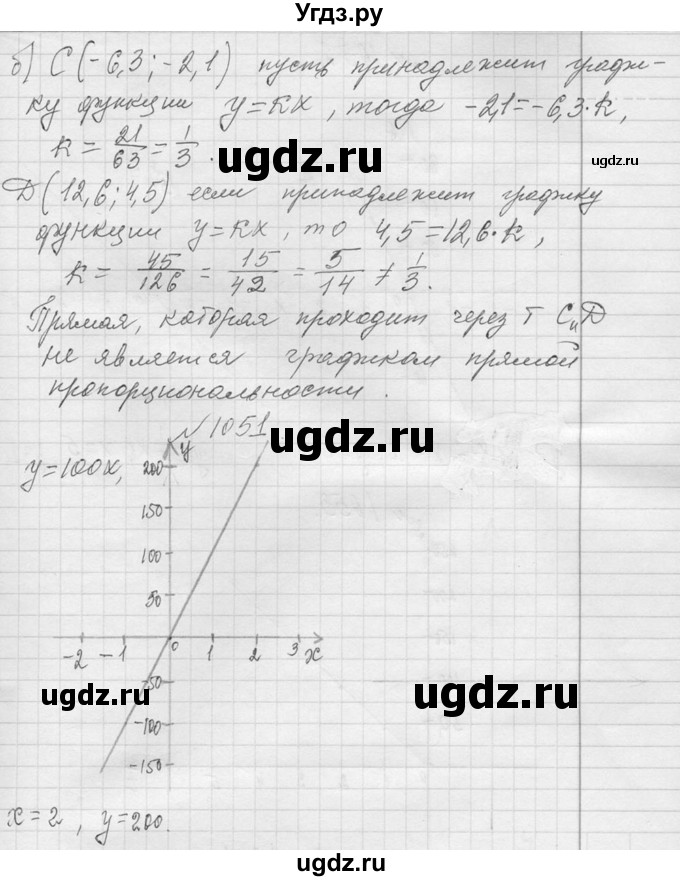 Угдз.ру
б) С(-6,3; -2,1) пусть принадлежит графи-
ку функции y=кx, тогда -2,1=-6,3·k,
k = 21/63 = 1/3.
ugdz.ru
ugdz.ru
Д(12,6; 4,5) если принадлежит графику
функции y=кx, то 4,5=12,6·k,
k = 45/126 = 15/42 = 5/14 ≠ 1/3.
Прямая, которая проходит через т С и Д
не является графиком прямой
пропорциональности.
№1051
ugdz.ru
y=100x,
y
200
150
100
50
-2 -1 0 1 2 3 x
-50
-100
-150
ugdz.ru
ugdz.ru
x=2, y=200.
ugdz.ru